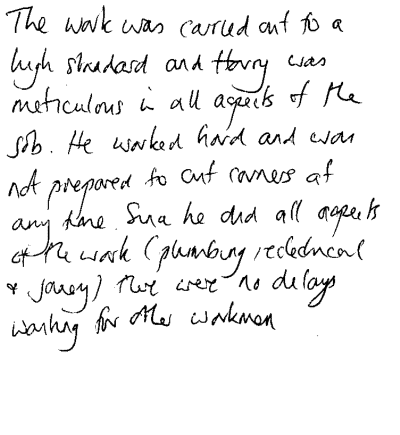 The work was carried out to a
high standard and Harry was
meticulous in all aspects of the
job. He worked hard and was
not prepared to cut corners at
any time. Since he did all aspects
of the work (plumbing, electrical
& joinery) there were no delays
waiting for other workmen